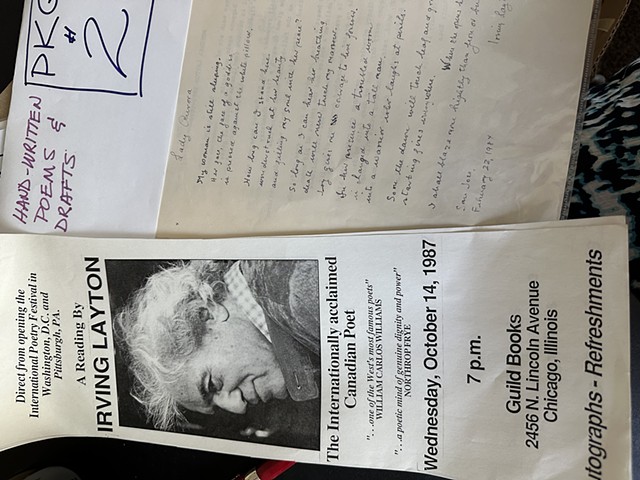 Direct from opening the
International Poetry Festival in
Washington, D.C. and
Pittsburgh, PA.
A Reading By
IRVING LAYTON
The Internationally acclaimed
Canadian Poet
"...one of the West's most famous poets"
WILLIAM CARLOS WILLIAMS
"...a poetic mind of genuine dignity and power"
NORTHROP FRYE
Wednesday, October 14, 1987
7 p.m.
Guild Books
2456 N. Lincoln Avenue
Chicago, Illinois
utographs - Refreshments
HAND-WRITTEN
POEMS &
DRAFTS
PKG
#
2
Lady Aurora
My woman is still sleeping.
Her face, the face of a goddess
is pressed against the white pillow.
How long can I stand here
wonderstruck at her beauty
and filling my soul with her peace?
So long as I can hear her breathing
death will never touch my marrow.
Joy gives me courage to live forever.
In her presence a troubled worm
is changed into a tall man,
into a warrior who laughs at perils.
Soon the dawn will touch leaf and
starting fires everywhere.
When she opens h
I shall blaze more brightly than fern or bu
San Jose,
February 22, 1984
Irving Lay